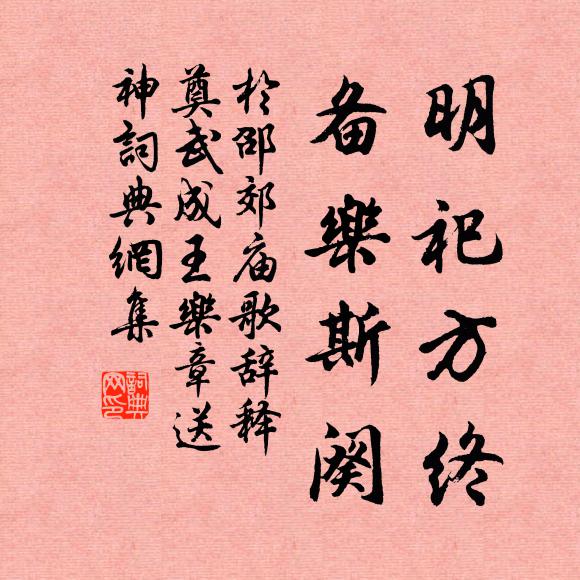 明祀方终
备樂斯阕
於邵郊庙歌辞释
奠武成王樂章送
神詞典網集
詞典
网印